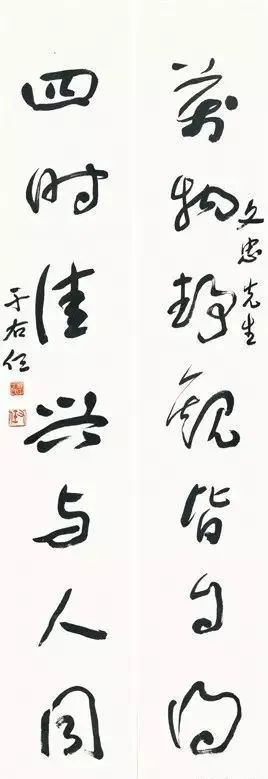 萬物静觀皆自得
文忠先生
四时佳兴与人同
于右任